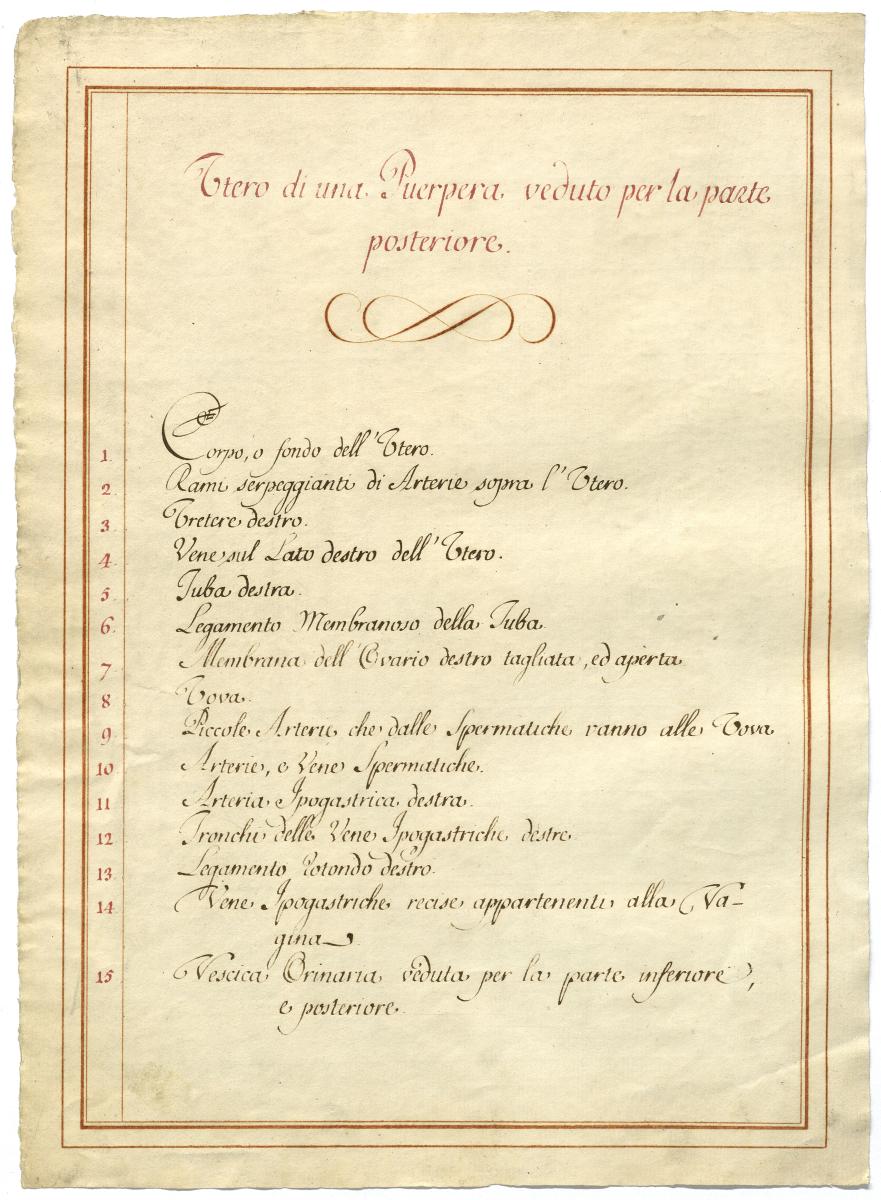 Vtero di una Puerpera veduto per la parte
posteriore.
1 Corpo, o fondo dell' Vtero.
2 Rami serpeggianti di Arterie sopra l' Vtero.
3 Vretere destro.
4 Vene sul Lato destro dell' Vtero.
5 Tuba destra.
6 Legamento Membranoso della Tuba
7 Membrana dell' Ovario destro tagliata, ed aperta
8 Vova.
9 Piccole Arterie che dalle Spermatiche vanno alle Vova
10 Arterie, e Vene Spermatiche.
11 Arteria Ipogastrica destra.
12 Tronchi delle Vene Ipogastriche destre
13 Legamento Rotondo destro.
14 Vene Ipogastriche recise appartenenti alla Va-
gina.
15 Vescica Orinaria veduta per la parte inferiore,
e posteriore.